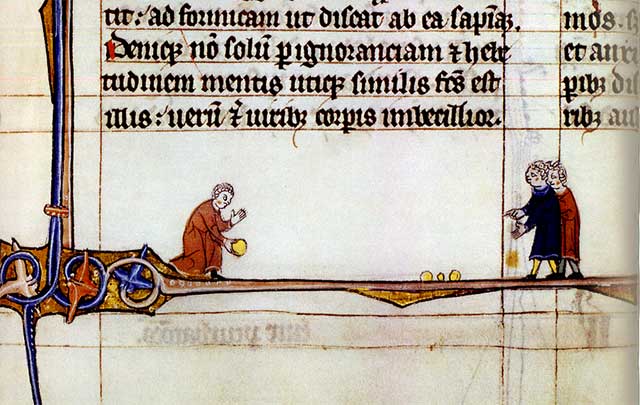 tit: ad formicam ut discat ab ea sapiã.
Deniqꝫ nõ solũ p ignoranciam ⁊ hebe
tudinem mentis utiqꝫ similis fts est
illis: uerũ ⁊ uiribꝫ corpis imbecillior.
mos.
et aure
pibꝫ di
ribꝫ